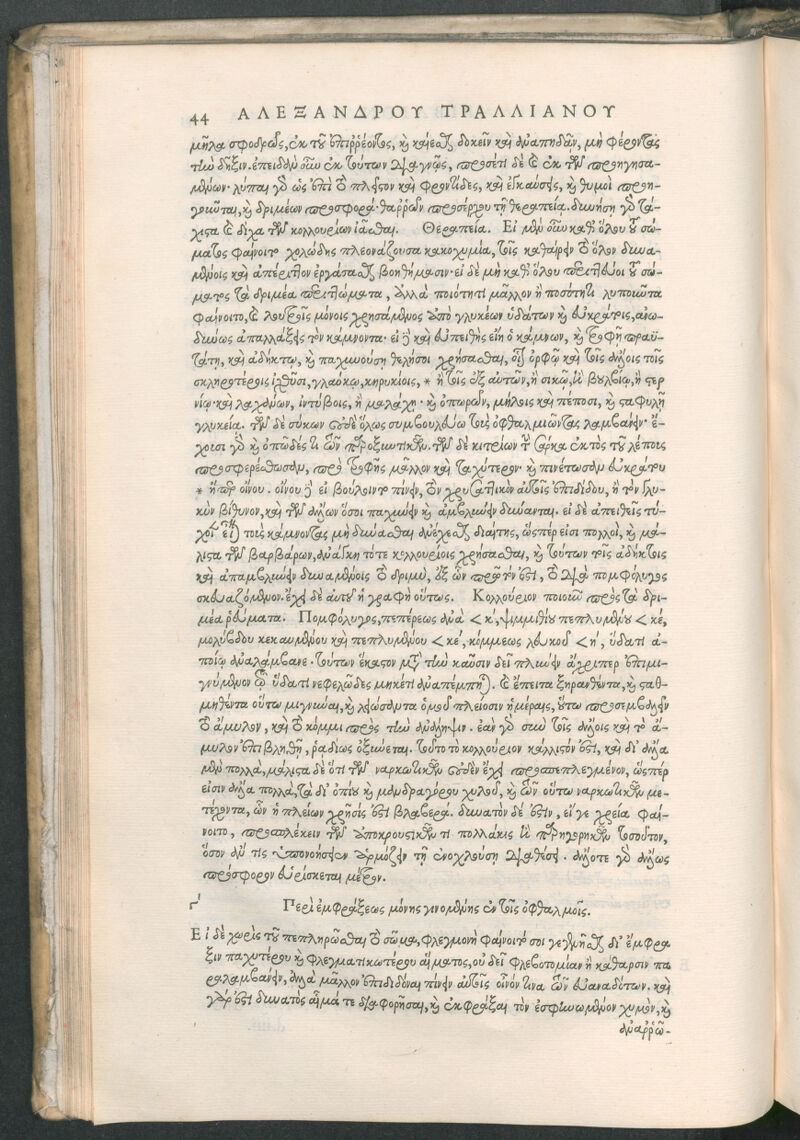 44 ΑΛΕΞΑΝΔΡΟΥ ΤΡΑΛΛΙΑΝΟΥ
μῆλα σφοδρῶς, ἐκ τοῦ ἐπιῤῥέοντος, καὶ δοκεῖν καὶ ἀναπηδᾶν, μὴ φέροντας
τὴν δῆξιν. ἐπειδὰν οὖν ἐκ τούτων διαγνῷς, προσέτι δὲ καὶ ἐκ τῶν προηγησα-
μένων· λύπαι γὰρ ὡς ἐπὶ τὸ πλεῖστον καὶ φροντίδες, καὶ ἐγκαύσεις, καὶ θυμοὶ προη-
γοῦνται, καὶ δριμέων προσφορά· θαῤῥῶν προσέρχου τῇ θεραπείᾳ. δυνήσῃ γὰρ τά-
χιστα καὶ δίχα τῶν κολλουρίων ἰᾶσθαι. Θεραπεία. Εἰ μὲν οὖν καθ' ὅλου τοῦ σώ-
ματος φαίνοιτο χολώδης πλεονάζουσα κακοχυμία, τοῖς καθαίρειν τὸ ὅλον δυνα-
μένοις καὶ ἀπέριττον ἐργάσασθαι βοηθήμασιν· εἰ δὲ μὴ καθ' ὅλου περιττεύοι τοῦ σώ-
ματος τὰ δριμέα περιττώματα, ἀλλὰ ποιότητι μᾶλλον ἢ ποσότητι λυποῦντα
φαίνοιτο, καὶ λουτροῖς μόνοις χρησάμενος ἀπὸ γλυκέων ὑδάτων καὶ εὐκράτοις, ἀνω-
δύνως ἀπαλλάξεις τὸν κάμνοντα· εἰ δὲ καὶ εὐπειθὴς εἴη ὁ κάμνων, καὶ τροφῇ πραϋ-
τάτῃ, καὶ ἀδήκτῳ, καὶ παχυνούσῃ θελήσοι χρήσασθαι, οἷον ὀρφῷ καὶ τοῖς ἄλλοις τοῖς
σκληροτέροις ἰχθύσι, γλαύκῳ, κηρυκίοις, * ἢ τοῖς ἐξ αὐτῶν, ἢ σικῷ, ἢ βουλβίῳ, ἢ στερ
νίῳ· καὶ λαχάνων, ἰντύβοις, ἢ μαλάχῃ· καὶ ὀπωρῶν, μήλοις καὶ πέποσι, καὶ σταφυλῇ
γλυκείᾳ. τῶν δὲ σύκων οὐδὲ ὅλως συμβουλεύω τοὺς ὀφθαλμιῶντας λαμβάνειν· ἔ-
χουσι γὰρ καὶ ὀπῶδές τι τῶν προξιωτικῶν. τῶν δὲ κιτρίων τὴν σάρκα ἐκτὸς τοῦ λέπους
προσφερέσθωσαν, πρὸ τροφῆς μᾶλλον καὶ ταχύτερον καὶ πινέτωσαν εὐκράτου
* ἤπερ οἴνου. οἴνου δὲ εἰ βούλοιντο πίνειν, τὸν χρυσαττικὸν αὐτοῖς ἐπιδίδου, ἢ τὸν γλυ-
κὺν βίθυνον, καὶ τῶν ἄλλων ὅσοι παχύνειν καὶ ἀμβλύνειν δύνανται. εἰ δὲ ἀπειθεῖς τύ-
χοιεν εἶναι τοὺς κάμνοντας μὴ δύνασθαι ἀνέχεσθαι διαίτης, ὥσπέρ εἰσι πολλοὶ, καὶ μά-
λιστα τῶν βαρβάρων, ἀνάγκη τότε κολλουρίοις χρήσασθαι, καὶ τούτων τοῖς ἀδήκτοις
καὶ ἀπαμβλύνειν δυναμένοις τὸ δριμὺ, ἐξ ὧν πρῶτόν ἐστι, τὸ διὰ πομφόλυγος
σκευαζόμενον. ἔχει δὲ αὐτοῦ ἡ γραφὴ οὕτως. Κολλούριον ποιοῦν πρὸς τὰ δρι-
μέα ῥεύματα. Πομφόλυγος, πεπέρεως ἀνὰ < κ', ψιμμιθίου πεπλυμένου < κέ,
μολύβδου κεκαυμένου καὶ πεπλυμένου < κέ, κόμμεως λευκοῦ < η', ὕδατι ἀ-
ποίῳ ἀναλάμβανε. τούτων ἕκαστον μετὰ τὴν καῦσιν δεῖ πλύνειν ἄχριπερ ἐπιμι-
γνύμενον τῷ ὕδατι νεφελῶδες μηκέτι ἀναπέμπηται. καὶ ἔπειτα ξηρανθέντα, καὶ σταθ-
μηθέντα οὕτω μιγνύναι, καὶ λειῶσθαι ὁμοῦ πλείοσιν ἡμέραις, οὕτω προσεμβάλλειν
τὸ ἄμυλον, καὶ τὸ κόμμι πρὸς τὴν ἀνάληψιν. ἐὰν γὰρ σὺν τοῖς ἄλλοις καὶ τὸ ἄ-
μυλον ἐπιβληθῇ, ῥαδίως ὀξύνεται. τοῦτο τὸ κολλούριον κάλλιστόν ἐστι, καὶ δι' ἄλλα
μὲν πολλὰ, μάλιστα δὲ ὅτι τῶν ναρκωτικῶν οὐδὲν ἔχει προσπεπλεγμένον, ὥσπέρ
εἰσιν ἄλλα πολλὰ, τὰ δι' ὀπίου καὶ μανδραγόρου χυλοῦ, καὶ τῶν οὕτω ναρκωτικῶν με-
τέχοντα, ὧν ἡ πλείων χρῆσίς ἐστι βλαβερά. δυνατὸν δέ ἐστιν, εἴ γε χρεία φαί-
νοιτο, προσπλέκειν τῶν ἀποκρουστικῶν τι πολλάκις ἢ παρηγορικῶν τοσοῦτον,
ὅσον ἄν τις ὑπονοήσειεν ἁρμόζειν τῇ ἐνοχλούσῃ διαθέσει. ἄλλοτε γὰρ ἄλλως
πρόσφορον εὑρίσκεται μέτρον.
γ' Περὶ ἐμφράξεως μόνης γινομένης ἐν τοῖς ὀφθαλμοῖς.
Εἰ δὲ χωρὶς τοῦ πεπληρῶσθαι τὸ σῶμα, φλεγμονὴ φαίνοιτό σοι γεγενῆσθαι δι' ἔμφρα
ξιν παχυτέρου καὶ φλεγματικωτέρου αἵματος, οὐ δεῖ φλεβοτομίαν ἢ κάθαρσιν πα
ραλαμβάνειν, ἀλλὰ μᾶλλον ἐπιδιδόναι πίνειν αὐτοῖς οἶνόν τινα τῶν εὐαναδότων. καὶ
γάρ ἐστι δυνατὸς αἷμά τε διαφορῆσαι, καὶ ἐκφράξαι τὸν ἐσφηνωμένον χυμὸν, καὶ
ἀναῤῥῶ-